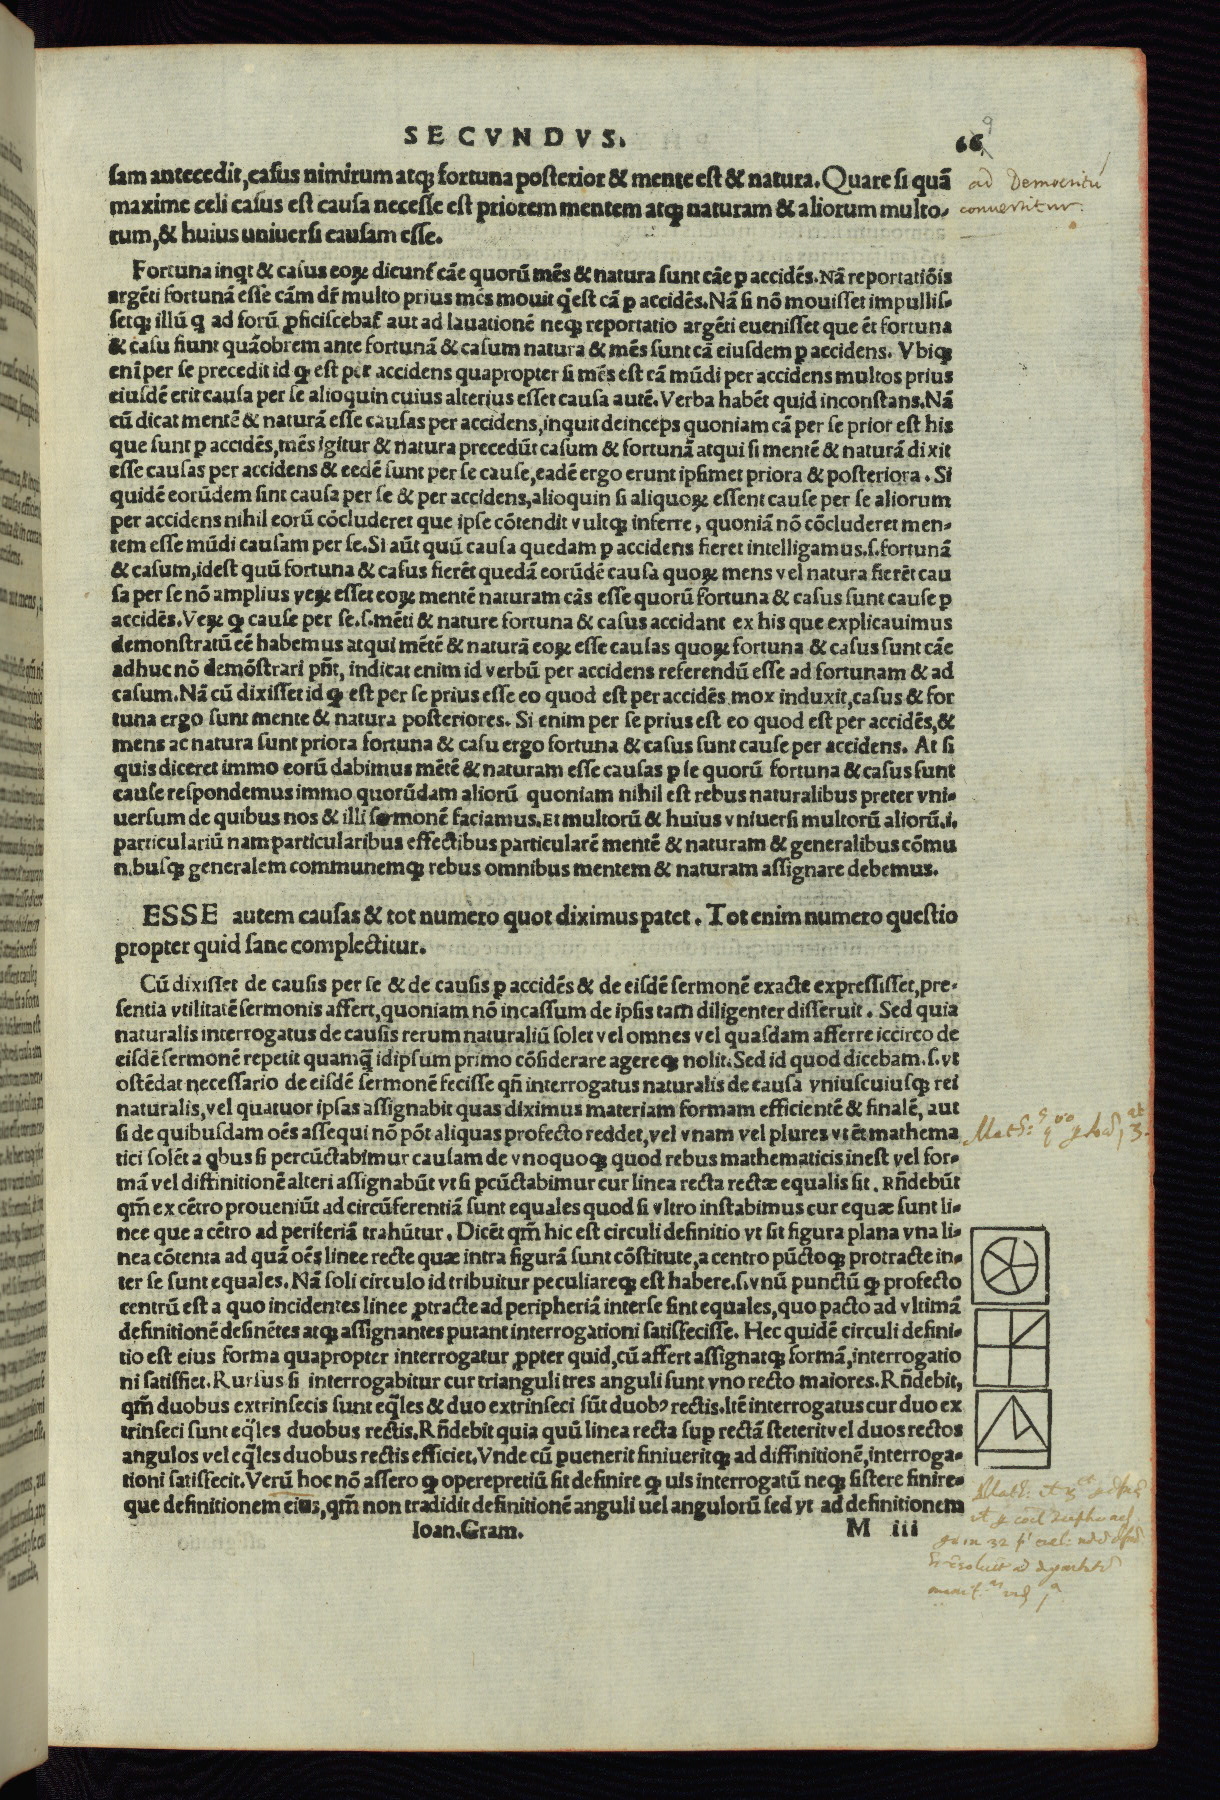 SECVNDVS.
66
9
sam antecedit, casus nimirum atqꝫ fortuna posterior & mente est & natura. Quare si quā
maxime celi casus est causa necesse est priorem mentem atqꝫ naturam & aliorum multo-
rum, & huius uniuersi causam esse.
ad Democritū
conuertitur.
Fortuna inqt & casus eoꝝ dicunt̃ cāe quorū mēs & natura sunt cāe ꝑ accidēs. Nā reportatiōis
argēti fortunā esse cām dr̃ multo prius mēs mouit q̄ est cā ꝑ accidēs. Nā si nō mouisset impullis-
setqꝫ illū q̄ ad forū ꝓficiscebat̃ aut ad lauationē neqꝫ reportatio argēti euenisset que ēt fortuna
& casu fiunt quāobrem ante fortunā & casum natura & mēs sunt cā eiusdem ꝑ accidens. Vbiqꝫ
enī per se precedit id qꝫ est per accidens quapropter si mēs est cā mūdi per accidens multos prius
eiusdē erit causa per se alioquin cuius alterius esset causa autē. Verba habēt quid inconstans. Nā
cū dicat mentē & naturā esse causas per accidens, inquit deinceps quoniam cā per se prior est his
que sunt ꝑ accidēs, mēs igitur & natura precedūt casum & fortunā atqui si mentē & naturā dixit
esse causas per accidens & eedē sunt per se cause, eadē ergo erunt ipsimet priora & posteriora. Si
quidē eorūdem sint causa per se & per accidens, alioquin si aliquoꝝ essent cause per se aliorum
per accidens nihil eorū cōcluderet que ipse cōtendit vultqꝫ inferre, quoniā nō cōcluderet men-
tem esse mūdi causam per se. Si aūt quū causa quedam ꝑ accidens fieret intelligamus. s. fortunā
& casum, idest quū fortuna & casus fierēt quedā eorūdē causa quoꝝ mens vel natura fierēt cau
sa per se nō amplius veꝝ esset eoꝝ mentē naturam cās esse quorū fortuna & casus sunt cause ꝑ
accidēs. Veꝝ qꝫ cause per se. s. mēti & nature fortuna & casus accidant ex his que explicauimus
demonstratū eē habemus atqui mētē & naturā eoꝝ esse causas quoꝝ fortuna & casus sunt cāe
adhuc nō demōstrari pn̄t, indicat enim id verbū per accidens referendū esse ad fortunam & ad
casum. Nā cū dixisset id qꝫ est per se prius esse eo quod est per accidēs mox induxit, casus & for
tuna ergo sunt mente & natura posteriores. Si enim per se prius est eo quod est per accidēs, &
mens ac natura sunt priora fortuna & casu ergo fortuna & casus sunt cause per accidens. At si
quis diceret immo eorū dabimus mētē & naturam esse causas ꝑ se quorū fortuna & casus sunt
cause respondemus immo quorūdam aliorū quoniam nihil est rebus naturalibus preter vni-
uersum de quibus nos & illi sermonē faciamus. Et multorū & huius vniuersi multorū aliorū. i.
particulariū nam particularibus effectibus particularē mentē & naturam & generalibus cōmu
n.busqꝫ generalem communemqꝫ rebus omnibus mentem & naturam assignare debemus.
ESSE autem causas & tot numero quot diximus patet. Tot enim numero questio
propter quid sane complectitur.
Cū dixisset de causis per se & de causis ꝑ accidēs & de eisdē sermonē exacte expressisset, pre-
sentia vtilitatē sermonis affert, quoniam nō incassum de ipsis tam diligenter disseruit. Sed quia
naturalis interrogatus de causis rerum naturaliū solet vel omnes vel quasdam afferre iccirco de
eisdē sermonē repetit quamq̄ idipsum primo cōsiderare agereqꝫ nolit. Sed id quod dicebam. s. vt
ostēdat necessario de eisdē sermonē fecisse qn̄ interrogatus naturalis de causa vniuscuiusqꝫ rei
naturalis, vel quatuor ipsas assignabit quas diximus materiam formam efficientē & finalē, aut
si de quibusdam oēs assequi nō pōt aliquas profecto reddet, vel vnam vel plures vt ēt mathema
tici solēt a qbus si percūctabimur causam de vnoquoqꝫ quod rebus mathematicis inest vel for-
mā vel diffinitionē alteri assignabūt vt si ꝑcūctabimur cur linea recta rectæ equalis sit. Rn̄debūt
qm̄ ex cētro proueniūt ad circūferentiā sunt equales quod si vltro instabimus cur equæ sunt li-
nee que a cētro ad periferiā trahūtur. Dicēt qm̄ hic est circuli definitio vt sit figura plana vna li-
nea cōtenta ad quā oēs linee recte quæ intra figurā sunt cōstitute, a centro pūctoqꝫ protracte in-
ter se sunt equales. Nā soli circulo id tribuitur peculiareqꝫ est habere. s. vnū punctū qꝫ profecto
centrū est a quo incidentes linee ꝓtracte ad peripheriā interse sint equales, quo pacto ad vltimā
definitionē desinētes atqꝫ assignantes putant interrogationi satisfecisse. Hec quidē circuli defini-
tio est eius forma quapropter interrogatur ꝓpter quid, cū affert assignatqꝫ formā, interrogatio
ni satisfiet. Rursus si interrogabitur cur trianguli tres anguli sunt vno recto maiores. Rn̄debit,
qm̄ duobus extrinsecis sunt eq̄les & duo extrinseci sūt duobꝰ rectis. Itē interrogatus cur duo ex
trinseci sunt eq̄les duobus rectis. Rn̄debit quia quū linea recta suꝑ rectā steterit vel duos rectos
angulos vel eq̄les duobus rectis efficiet. Vnde cū ꝑuenerit finiueritqꝫ ad diffinitionē, interroga-
tioni satisfecit. Verū hoc nō assero qꝫ operepretiū sit definire qꝫ uis interrogatū neqꝫ sistere finire-
que definitionem eius, qm̄ non tradidit definitionē anguli uel angulorū sed vt ad definitionem
Ioan. Gram.
M iii